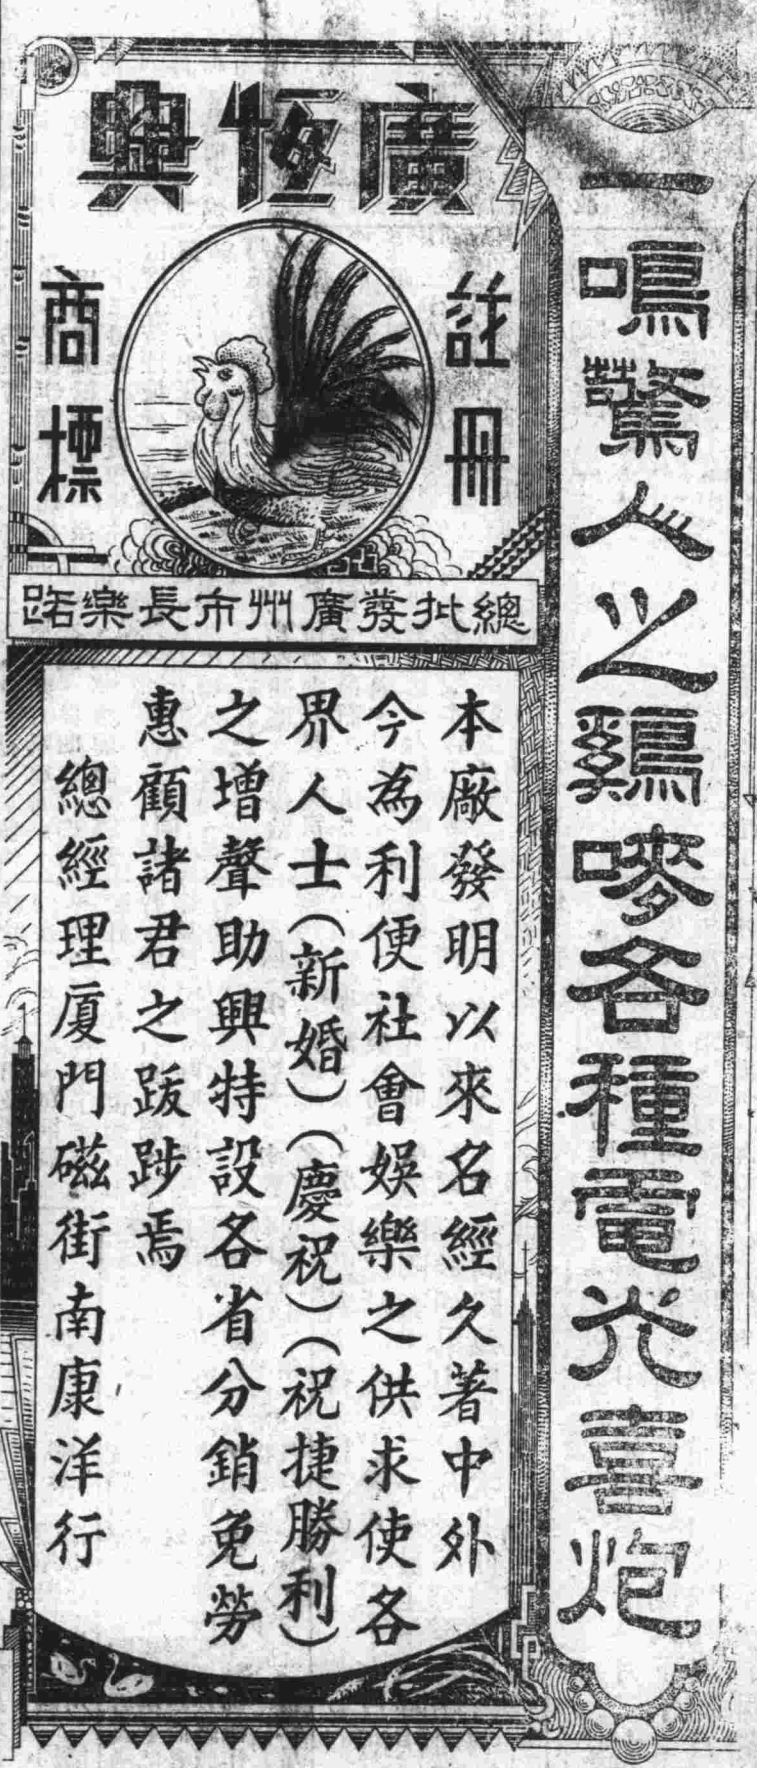 一鳴驚人之鷄嘜各種電光喜炮
廣恆興
註冊
商標
總批發廣州市長樂路
本廠發明以來名經久著中外
今為利便社會娛樂之供求使各
界人士(新婚)(慶祝)(祝捷勝利)
之增聲助興特設各省分銷免勞
惠顧諸君之跋踄焉
總經理廈門磁街南康洋行